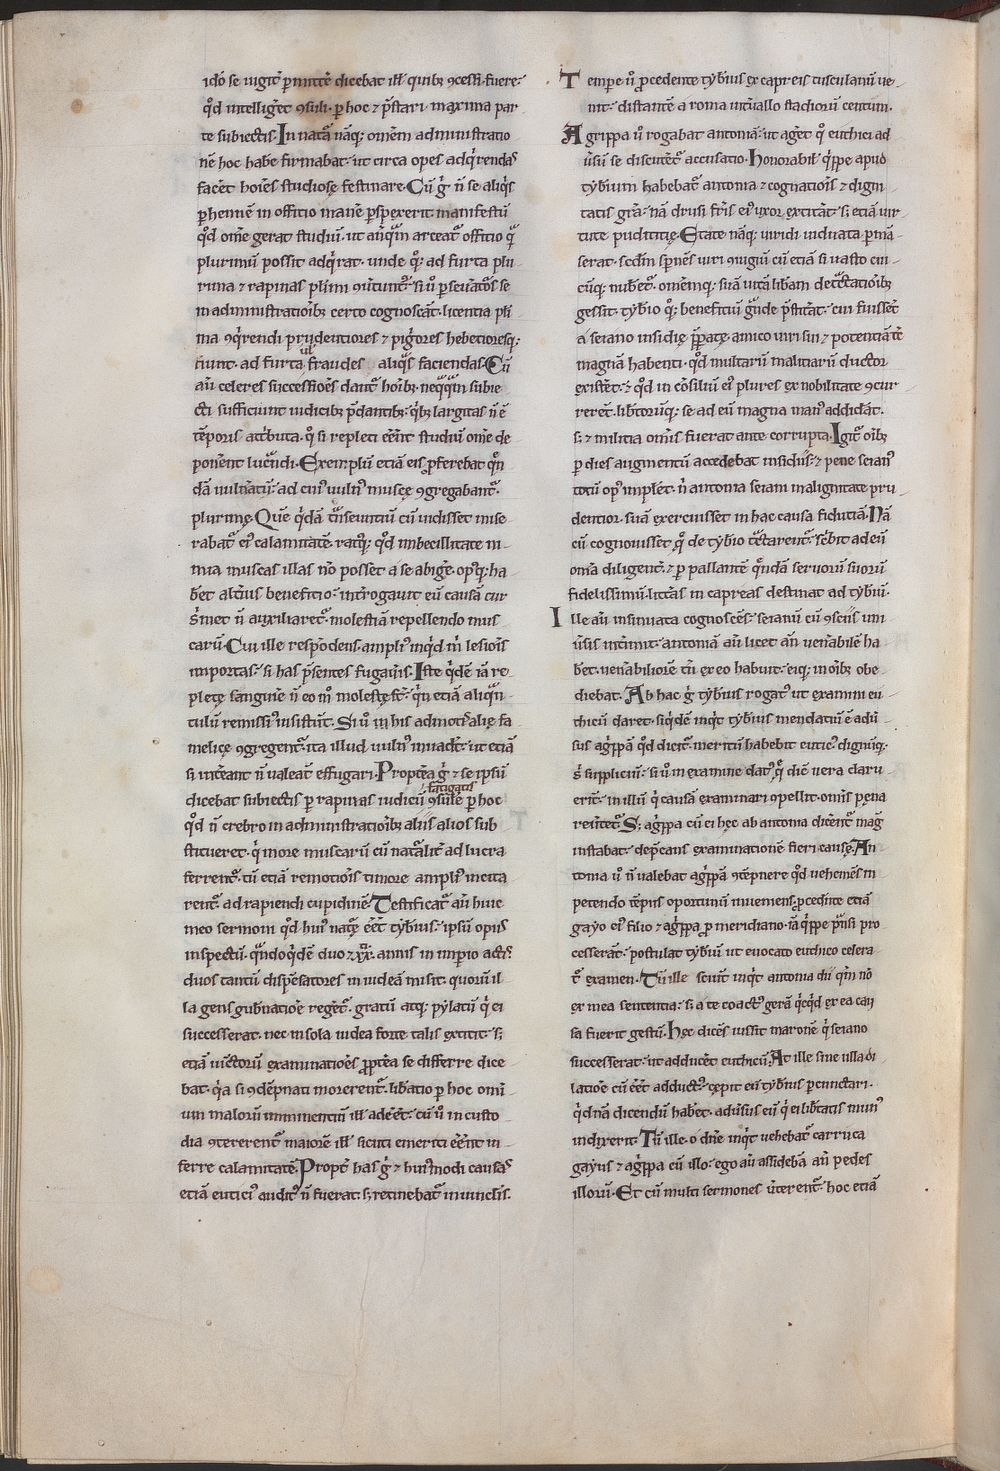 idó se uigit̃ p̱mitt̃e dicebat ill̃ quibꝫ ꝯcessi fuere:
qd̃ intelliget̃ ꝯsuli. p̱ hoc ⁊ p̃stari. maxima par
te subiectis. In nat̃a nãqꝫ omẽm administratio
nẽ hoc habe firmabat. ut circa opes adq̃rendas
facẽt hoĩes studiosę festinare. Cũ g̃ ñ se aliq̃s
p̱hennẽ in offitio manẽ p̱spexerit manifestũ
qd̃ om̃e gerat studiũ. ut anq̃m arceat̃ offitio q̃
plurimũ possit adq̃rat. unde qͦꝫ ad furta plu
rima ⁊ rapinas pl̃imi ꝯũtunt̃. si uͦ p̱seuat̃os se
in administratioĩbꝫ certo cognoscãt. licentia pl̃i
ma ꝯq̃rendi prudentiores ⁊ pig̃ores hebetioresqꝫ
fiunt. ad furta ul̃ fraudes aliq̃s faciendas. Cũ
aũ celeres successiõẽs dant̃ hoĩbꝫ. neq̃q̃m subie
cti sufficiunt iudicibꝫ p̃dantibꝫ. q̃bꝫ largitas ñ ẽ
tẽporis att̃buta. qͦ si repleti eẽnt studiũ om̃e de
ponẽnt luc̃andi. Exemplũ etiã eis p̱ferebat q̃n
dã uuln̾atũ. ad cui᷒ uuln᷒ muscę ꝯgregabant̃.
plurimę. Quẽ q̃dã t̃nseuntiũ cũ uidisset mise
rabat̃ ei᷒ calamitatẽ. rat᷒qꝫ qd̃ imbecillitate ni
mia muscas illas nõ posset a se abig̃e. op᷒qꝫ ha
bẽt alt̃ius benefitio. int̃rogauit eũ causã cur
s̾met ñ auxiliaret̃. molestiã repellendo mus
carũ. Cui ille respõdens. ampli᷒ inq̃d m̃ lesioĩs
importas. si has p̃sentes fugau̾is. Iste q̃dẽ iã re
pletę sanguine ñ eo mͦ molestę st̃. q̃n etiã aliq̃n
tulũ remissi᷒ insistũt. Si uͦ in his admot᷒ alię fa
melicę ꝯgregent̃. ita illud uuln᷒ inuadẽt. ut etiã
si int̃eant ñ ualeat effugari. Propt̃ea g̃ ⁊ se ipsũ
dicebat subiectis p̱ rapinas iudicũ fatigatis ꝯsule p̱ hoc
qd̃ ñ crebro in administratioĩbꝫ aliis alios sub
stitueret. q̃ more muscarũ cũ nat̃alit̃ ad lucra
ferrent̃. tũ etiã remotioĩs timore ampli᷒ incita
rent̃. ad rapiendi cupidinẽ. Testificat̃ aũ huic
meo sermoni qd̃ hui᷒ nat̃ę eẽt tyb̾ius. ipsũ op᷒
inspectũ. q̃ndoq̃dẽ duo ⁊ xx. annis in imp̱io act᷒
duos tantũ dispẽsatores in iudeã misit. quorũ il
la gens gub̾natioẽ reget̃. gratũ atqꝫ pylatũ q̃ ei
successerat. nec in sola iudea forte talis extitit. sꝫ
etiã uict̃orũ examinatioẽs p̱pt̃ea se differre dice
bat. q̃a si ꝯdẽpnati morerent̃. lib̾atio p̱ hoc omĩ
um malorũ imminentiũ ill̃ adeẽt. cũ uͦ in custo
dia ꝯtererent̃ maiorẽ ill̃ sicuti emeriti eẽnt in
ferre calamitatẽ. Propt̃ has g̃ ⁊ hui᷒modi causas
etiã eutici᷒ audit᷒ ñ fuerat. sꝫ retinebat̃ in uinclis.
Tempe uͦ p̱cedente tyb̾ius ex capreis tusculanũ ue
nit. distantẽ a roma int̃uallo stadiorũ centum.
Agrippa uͦ rogabat antoniã. ut aget̃ qͦ euthici ad
u̾sũ se discutet̃ accusatio. Honorabil̃ q̃ppe apud
tyb̾ium habebat̃ antonia ⁊ cognatioĩs ⁊ digni
tatis grã. nã drusi fr̃is ei᷒ uxor extit̾at. sꝫ etiã uir
tute pudititię. Etate nãqꝫ uiridi uiduata p̱mã
serat. sc̃dm sp̾nẽs uiri ꝯiugiũ cũ etiã si uasto cui
cũqꝫ nub̾et. omẽmqꝫ suã uitã lib̾am det̃ctatioĩbꝫ
gessit. tyb̾io qͦꝫ benefitiũ g̃nde p̃stit̾at. cui fuissent
a seiano insidię p̱patę. amico uiri sui ⁊ potentiã tẽ
magnã habenti. qd̃ multarũ malitiarũ ductor
existẽt. ⁊ qd̃ in cõsiliũ ei᷒ plures ex nobilitate ꝯcur
rerẽt. lib̾torũqꝫ se ad eũ magna man᷒ addid̾at.
sꝫ ⁊ militia om̃is fuerat ante corrupta. Igit̃ oĩbꝫ
p̱ dies augmentũ accedebat insidiis. ⁊ pene seian᷒
totũ op᷒ implẽt. ñ antonia seiani malignitate pru
dentior. suã exercuisset in hac causa fiduciã. Nã
cũ cognouisset qͣ de tyb̾io t̃ctarent̃. sc̾bit ad eũ
om̃ia diligent̃. ⁊ p̱ pallantẽ q̃ndã seruorũ suorũ
fidelissimũ. litt̃as in capreas destinat ad tyb̾iũ.
Ille aũ insinuata cognoscẽs. seianũ cũ ꝯsciis uni
u̾sis int̾imit. antoniã aũ licet añ uen̾abilẽ ha
bẽt. uen̾abiliorẽ tñ ex eo habuit. eiqꝫ in oĩbꝫ obe
diebat. Ab hac g̃ tyb̾ius rogat᷒ ut examini eu
thicũ daret. siq̃dẽ inq̃t tyb̾ius mendatiũ ẽ adũ
sus ag̾ppã qd̃ dicit̃. meritũ habebit eutic᷒ dignũqꝫ
s̾ suppliciũ. si uͦ in examine dat᷒ q̃ dic̃ uera claru
erĩt. in illũ q̃ causã examinari ꝯpellit. om̃is pęna
reuẽtet̃. Sꝫ ag̾ppa cũ ei hęc ab antonia dicerent̃ mag̃
instabat. dep̃cans examinationẽ fieri causę. An
tonia uͦ ñ ualebat ag̾ppã ꝯtẽpnere qd̃ uehemẽs in
petendo. tẽpus oportunũ inueniens. p̱cedente etiã
gayo ei᷒ filio ⁊ ag̾ppa p̱ meridiano. iã q̃ppe p̃nsi pro
cesserãt. postulat tyb̾iũ ut euocato euthico celera
t̃ examen. Tũ ille sciunt inq̃t antonia dii qm̃ nõ
ex mea sententia. sꝫ a te coact᷒ gerã q̃cq̃d ex ea cau
sa fuerit gestũ. Hęc dicẽs iussit maronẽ q̃ seiano
successerat. ut adducẽt euthicũ. At ille sine ulla di
latioẽ cũ eẽt adduct᷒. cępit eũ tyb̾ius p̱cunctari.
q̃dnã dicendũ habẽt. adũsus eũ q̃ ei lib̾tatis mun᷒
indixerit. Tũ ille. o dñe inq̃t uehebat̃ carruca
gayus ⁊ ag̾ppa cũ illo. ego aũ assidebã añ pedes
illorũ. Et cũ multi sermones ũterent̃. hoc etiã